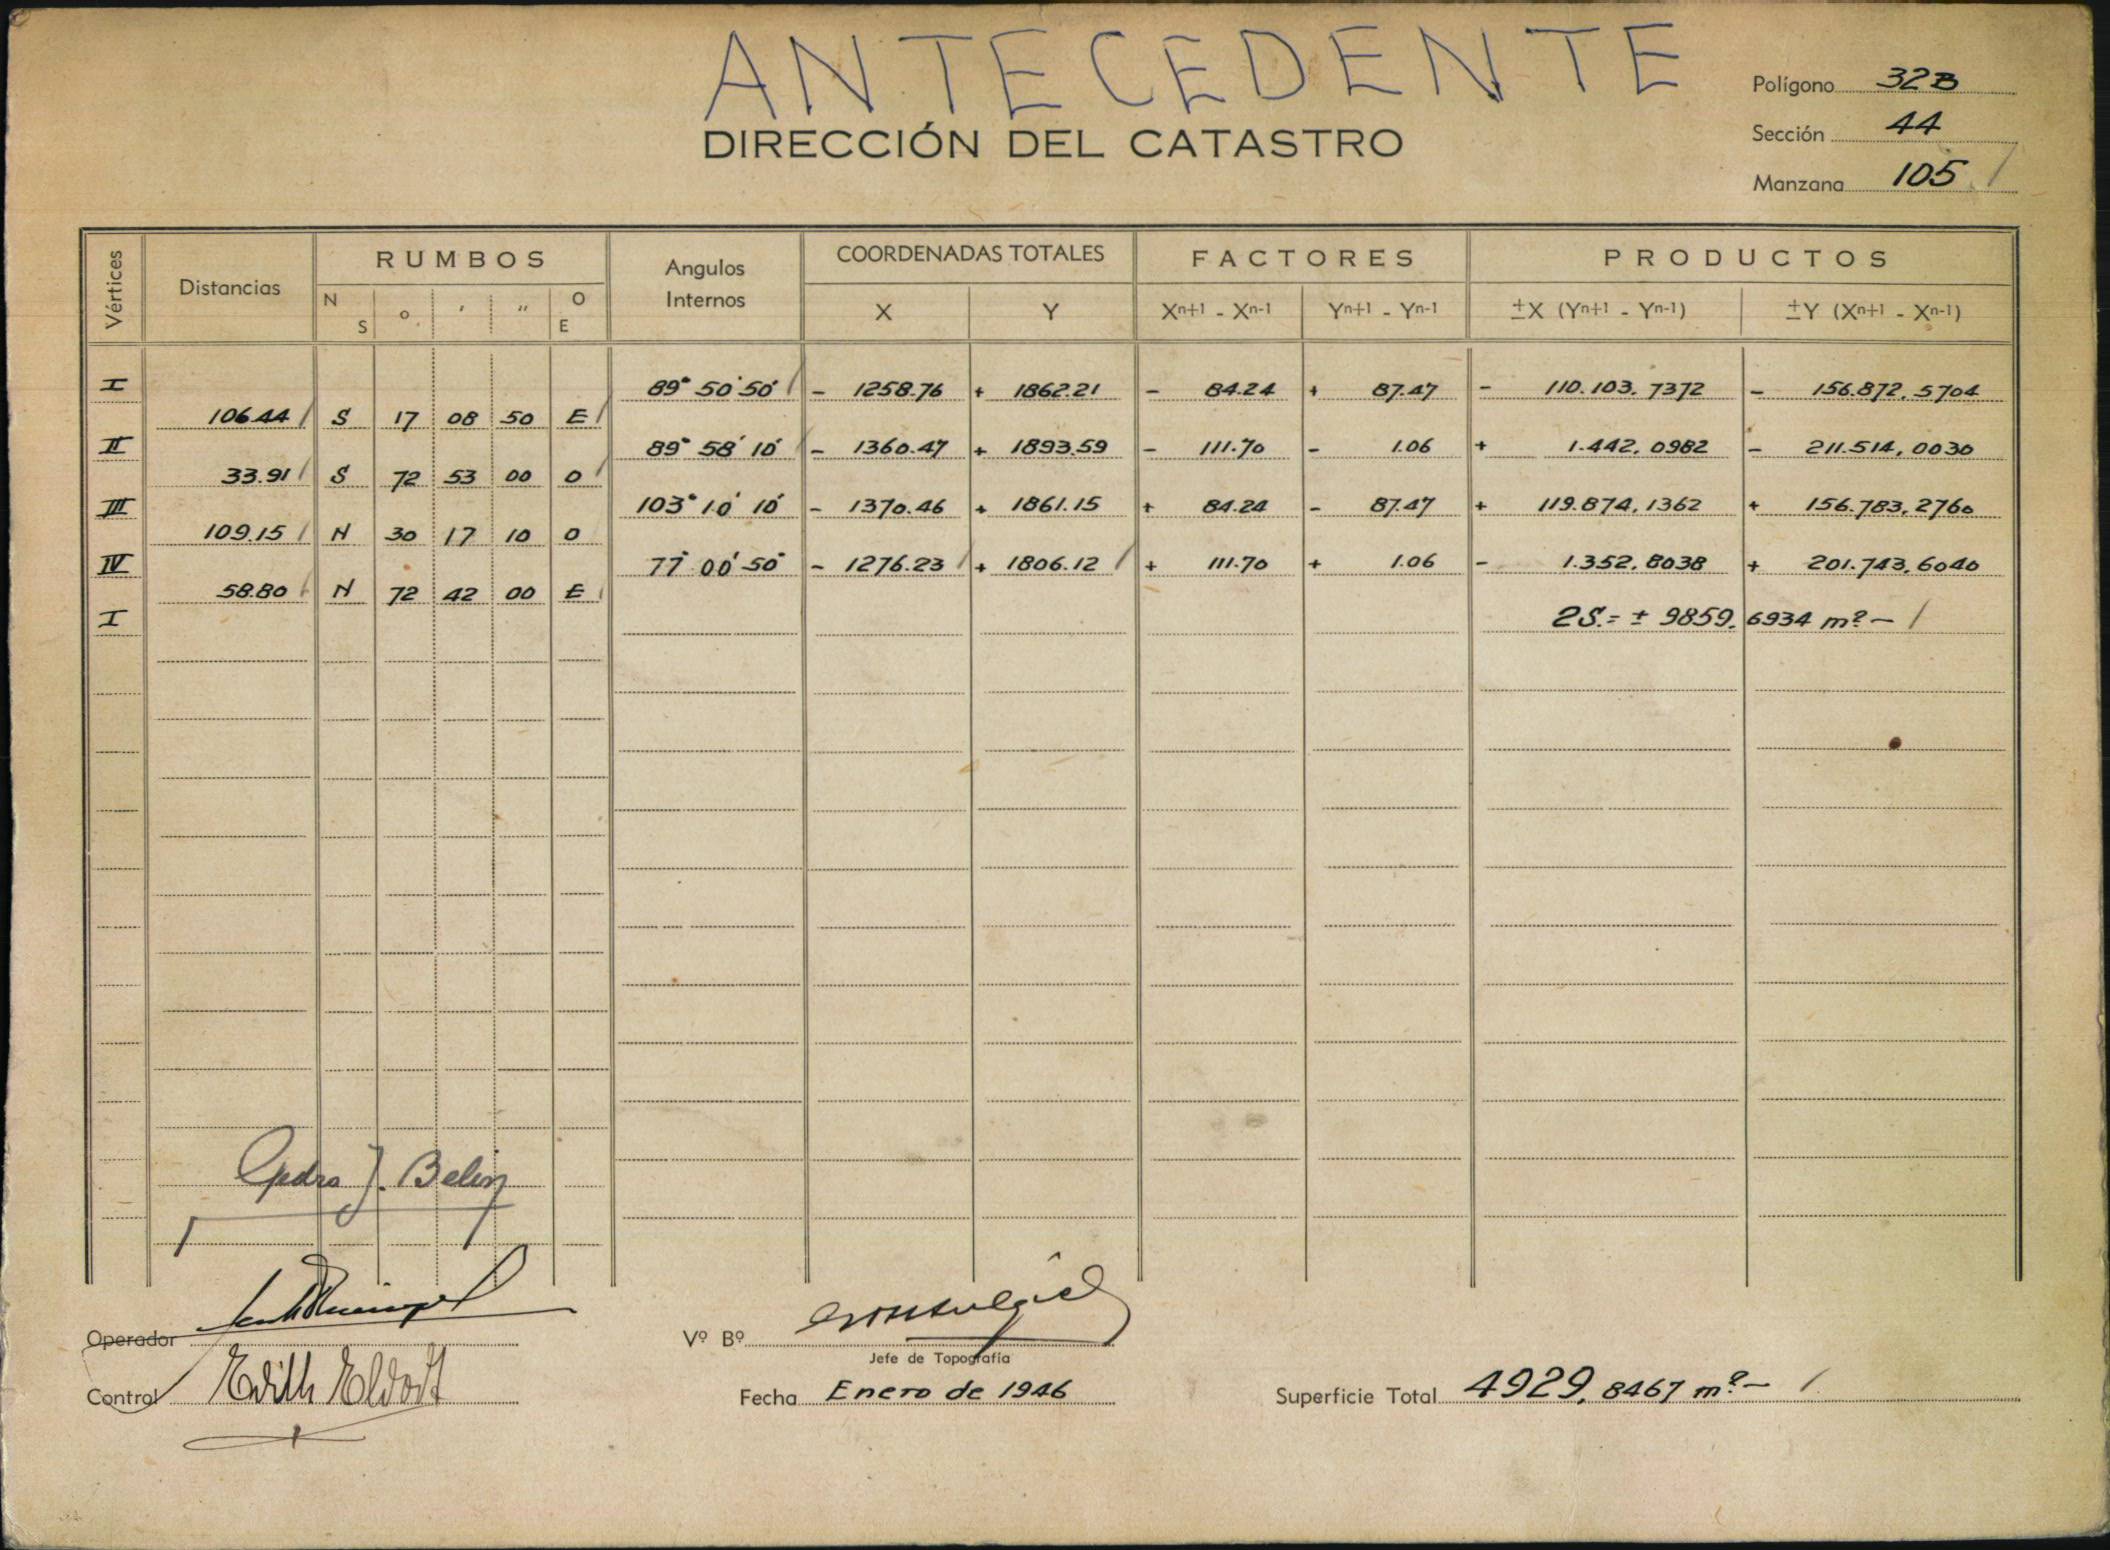 ANTECEDENTE
DIRECCIÓN DEL CATASTRO
Polígono 32B
Sección 44
Manzana 105
Vértices Distancias RUMBOS Angulos Internos COORDENADAS TOTALES FACTORES PRODUCTOS
N S ° ' " O E X Y Xn+1 - Xn-1 Yn+1 - Yn-1 ±X (Yn+1 - Yn-1) ±Y (Xn+1 - Xn-1)
I 89° 50' 50" - 1258.76 + 1862.21 - 84.24 + 87.47 - 110.103,7372 - 156.872,5704
106.44 S 17 08 50 E
II 89° 58' 10" - 1360.47 + 1893.59 - 111.70 - 1.06 + 1.442,0982 - 211.514,0030
33.91 S 72 53 00 O
III 103° 10' 10" - 1370.46 + 1861.15 + 84.24 - 87.47 + 119.874,1362 + 156.783,2760
109.15 N 30 17 10 O
IV 77° 00' 50" - 1276.23 + 1806.12 + 111.70 + 1.06 - 1.352,8038 + 201.743,6040
58.80 N 72 42 00 E
I 2S.= ± 9859,6934 m² -
Pedro J. Belin
Operador
Vº Bº
Jefe de Topografía
Control Edith
Fecha Enero de 1946
Superficie Total 4929,8467 m² -